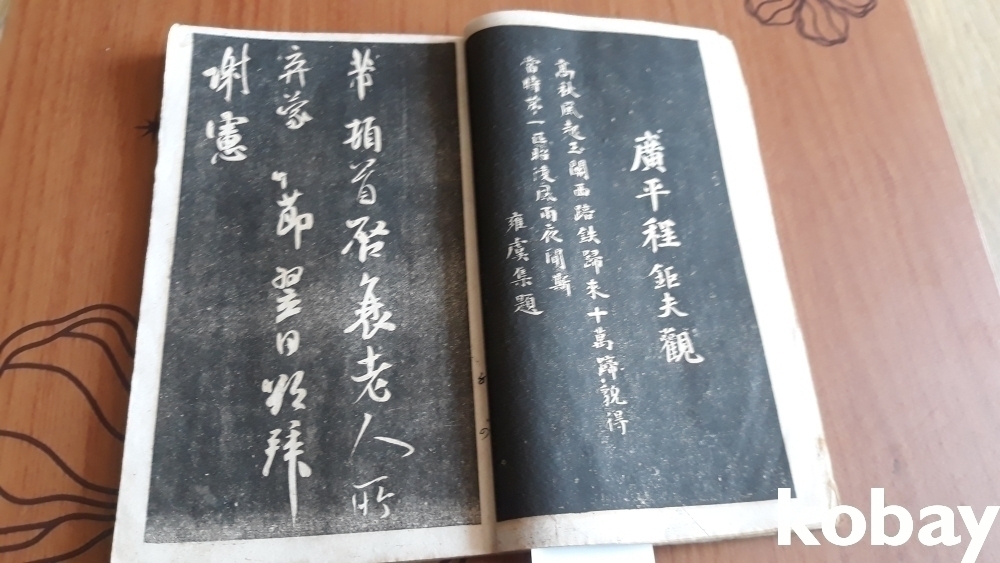 廣平程鉅夫觀
高秋風起玉關西踣鉄歸来十萬蹄貌得
當時第一匹昭陵風雨夜聞斯
雍虞集題
芾頓首啓衰老人所
弃蒙 節翌日 拜
謝憲
kobay